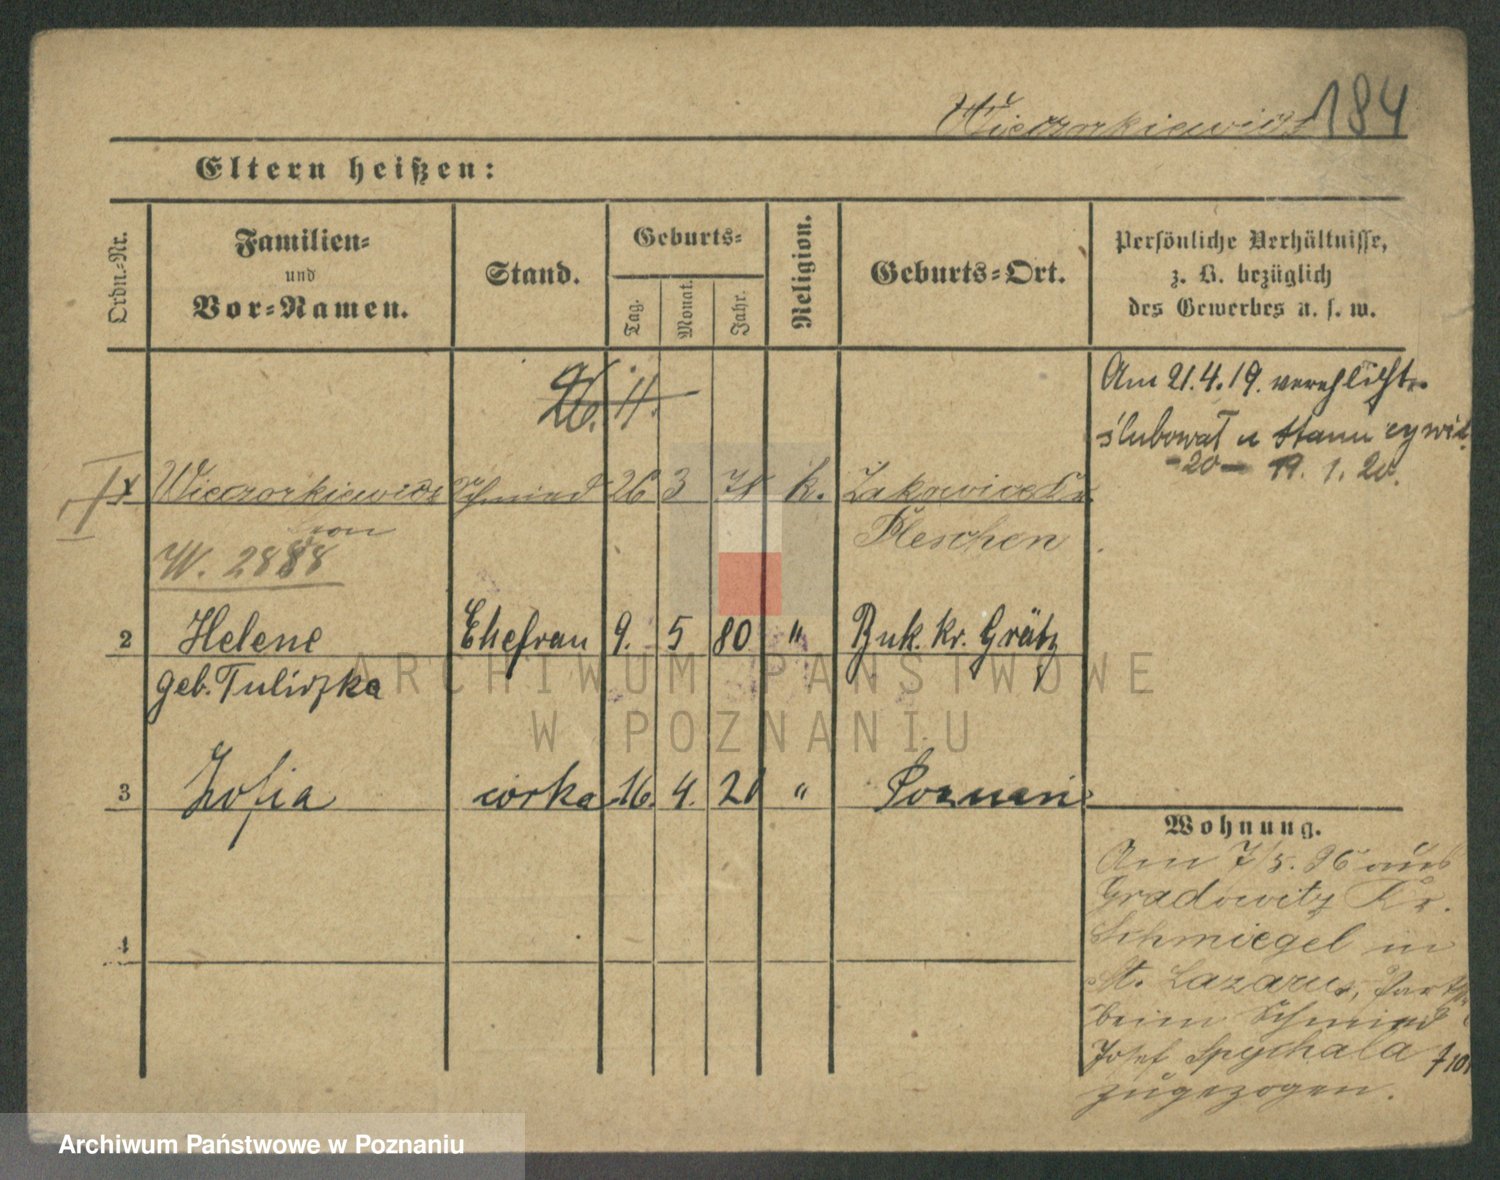 Wieczorkiewicz 184
Eltern heißen:
Ordn.-Nr. Familien- und Vor-Namen. Stand. Geburts- Tag. Monat. Jahr. Religion. Geburts-Ort. Persönliche Verhältnisse, z. B. bezüglich des Gewerbes u. s. w.
26. 11.
Am 21.4.19. verehlicht.
ślubował u stanu cywil.
-20- 19. 1. 20.
1 Wieczorkiewicz Schmied 26 3 k. Zakowice Kr.
Leon Pleschen
W. 2888
2 Helene Ehefrau 9. 5 80 " Buk. kr. Grätz
geb. Tuliszka
ARCHIWUM PAŃSTWOWE
W POZNANIU
3 Zofia córka 16. 4. 20 " Poznań
Wohnung.
Am 7/5. 96 aus
Gradowitz Kr.
Schmiegel in
St. Lazarus,
beim Schmied
Josef Spychala
zugezogen.
4
Archiwum Państwowe w Poznaniu